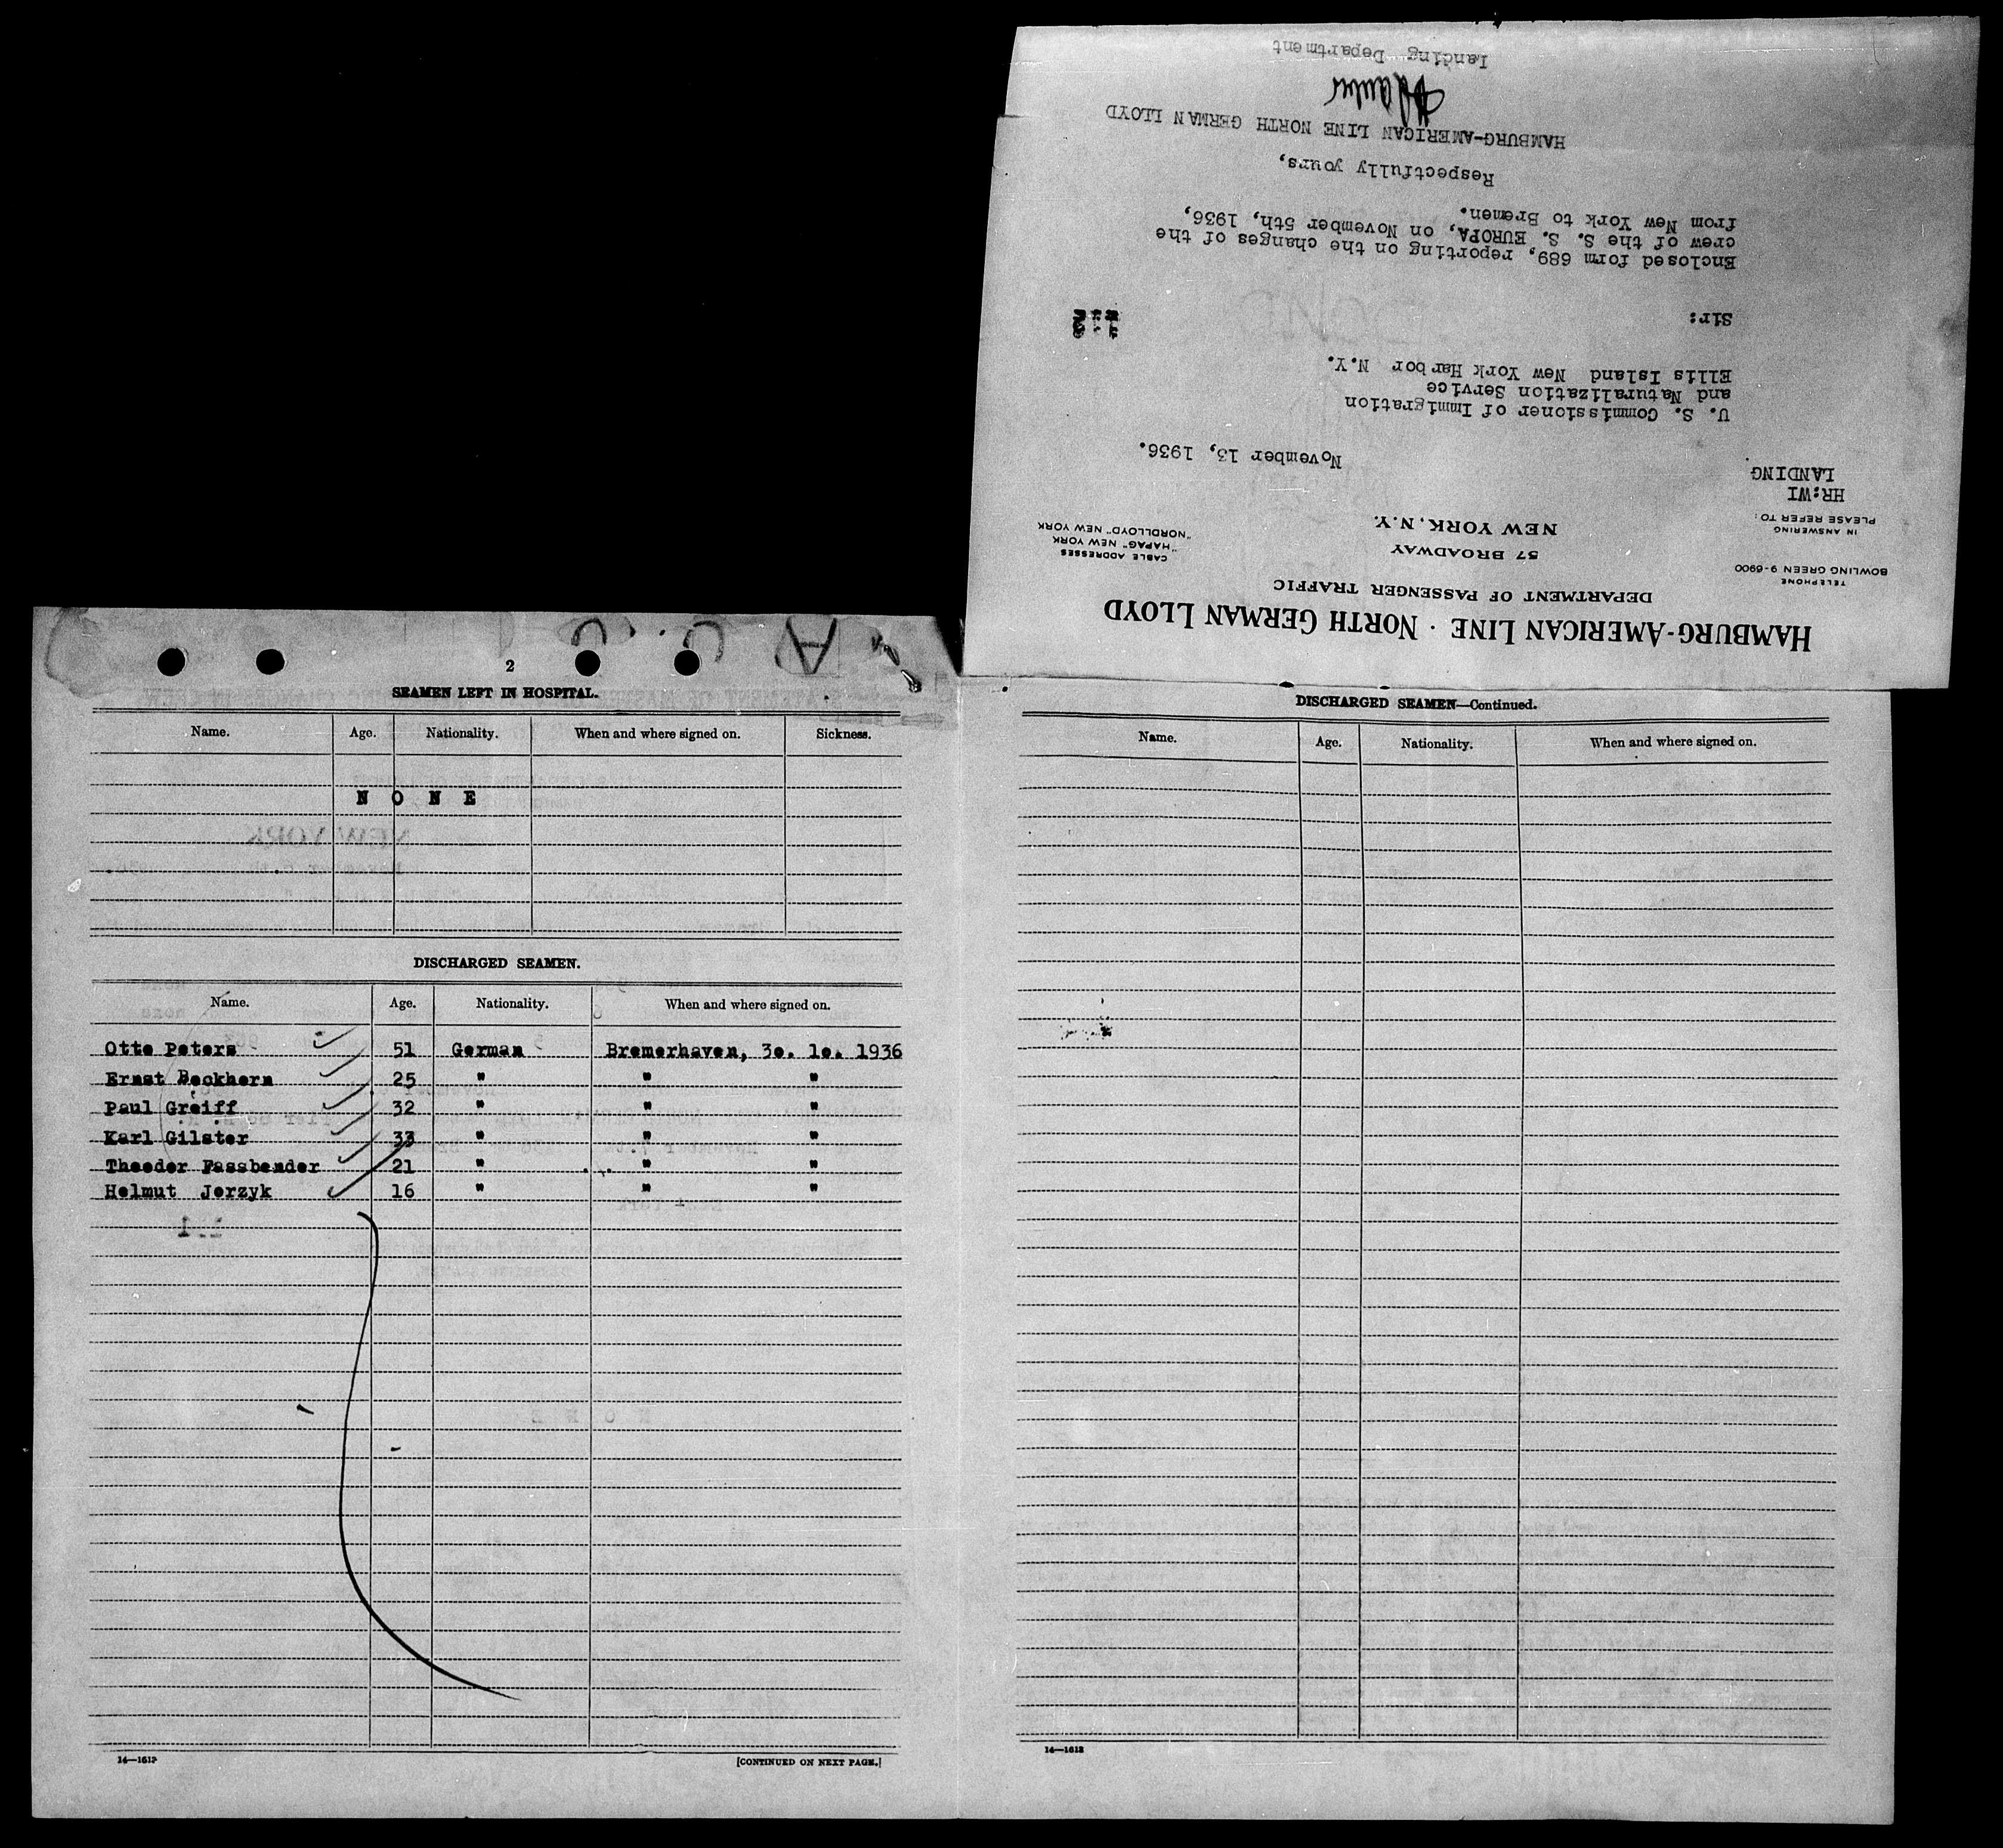 HAMBURG-AMERICAN LINE · NORTH GERMAN LLOYD
DEPARTMENT OF PASSENGER TRAFFIC
57 BROADWAY
NEW YORK, N.Y.
TELEPHONE
BOWLING GREEN 9-6900
CABLE ADDRESSES
"HAPAG" NEW YORK
"NORDLLOYD" NEW YORK
IN ANSWERING
PLEASE REFER TO:
HR:WI
LANDING
November 13, 1936.
U. S. Commissioner of Immigration
and Naturalization Service
Ellis Island New York Harbor N.Y.
Sir:
Enclosed form 689, reporting on the changes of the
crew of the S. S. EUROPA, on November 5th, 1936,
from New York to Bremen.
Respectfully yours,
HAMBURG-AMERICAN LINE NORTH GERMAN LLOYD
Landing Department
2
SEAMEN LEFT IN HOSPITAL.
Name. Age. Nationality. When and where signed on. Sickness.
N O N E
DISCHARGED SEAMEN.
Name. Age. Nationality. When and where signed on.
Otto Peters 51 German Bremerhaven, 3o. 1o. 1936
Ernst Beckhorn 25 " " "
Paul Greiff 32 " " "
Karl Gilster 33 " " "
Theodor Fassbender 21 " " "
Helmut Jerzyk 16 " " "
14—1613
[CONTINUED ON NEXT PAGE.]
DISCHARGED SEAMEN—Continued.
Name. Age. Nationality. When and where signed on.
14—1613